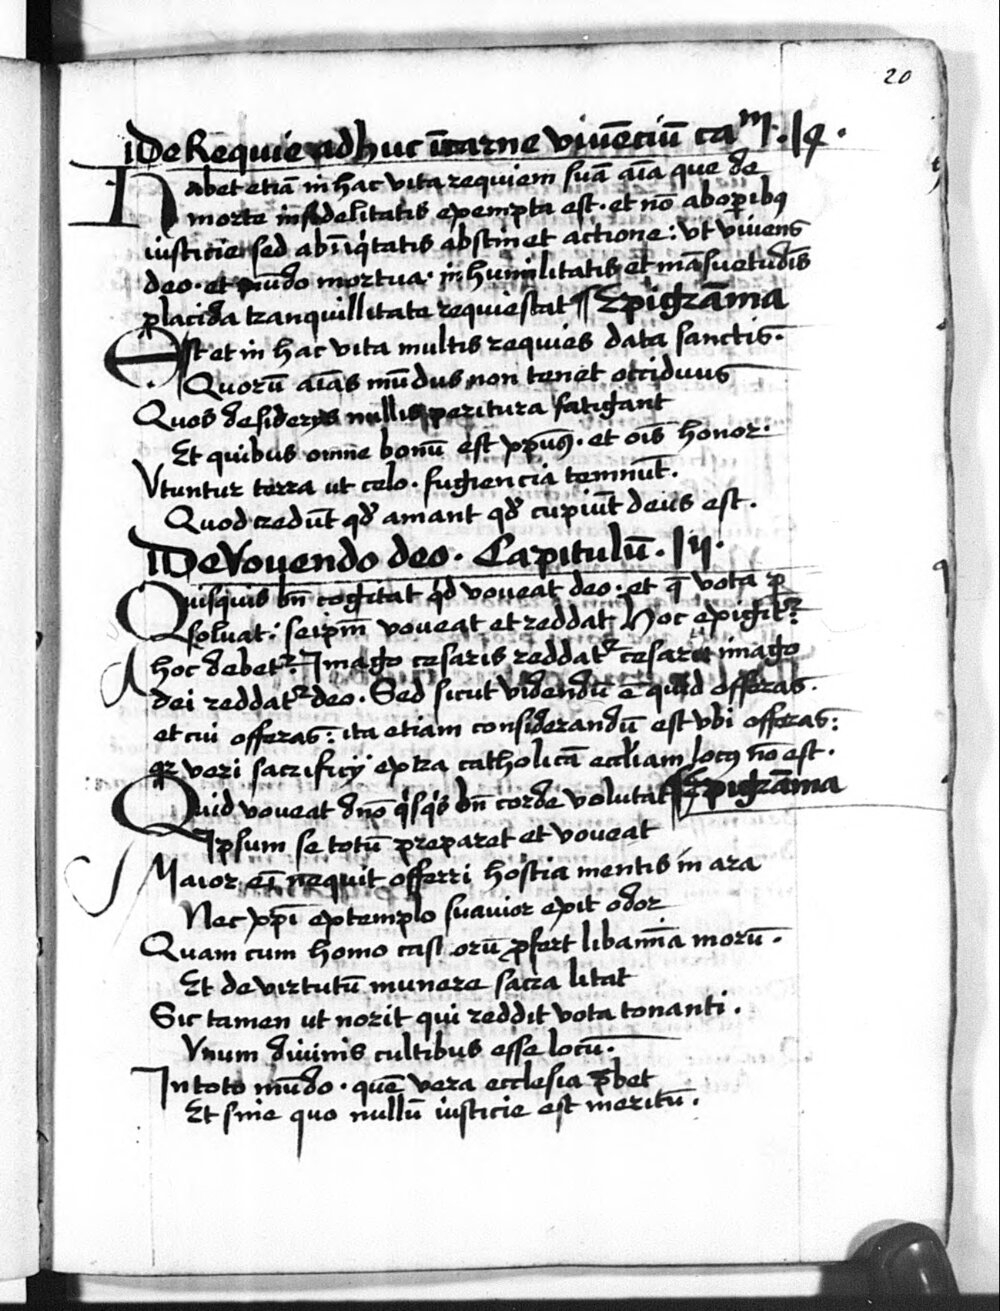 20
De Requie adhuc ī carne viuēciū caᵐ. 14.
Habet etiā in hac vita requiem suā aīa que de
morte infidelitatis exempta est. et nō ab opibꝰ
iusticie sed ab īiqͥtatis abstinet actione: vt viuens
deo. et mūdo mortua. in humilitatis et māsuetudīs
placida tranquillitate requiescat ¶ Epigrāma
Est et in hac vita multis requies data sanctis.
Quorū aīas mūdus non tenet occiduus
Quos desiderijs nullis peritura fatigant
Et quibus omne bonū est xp̄us. et oīs honor.
Vtuntur terra ut celo. fugiencia temnūt.
Quod credūt qđ amant qđ cupiūt deus est.
De Vouendo deo. Capitulū. 15.
Quisquis bn̄ cogitat qͥd voueat deo. et q̄ vota p̄
soluat: seipm̄ voueat et reddat Hoc exigitᷣ:
hoc debetᷣ. Imago cesaris reddatᷣ cesari imago
dei reddatᷣ deo. Sed sicut videndū ē quid offeras.
et cui offeras: ita etiam considerandū est vbi offeras:
qr veri sacrificij extra catholicā eccliam locꝰ nō est.
Quid voueat dn̄o qͥsqͥs bn̄ corde volutat ¶ Epigrāma
Ipsum se totū preparet et voueat
Maior ei nequit offerri hostia mentis in ara
Nec xp̄i ex templo suauior exit odor
Quam cum homo castorū ꝓfert libamīa morū.
Et de virtutū munere sacra litat
Sic tamen ut norit qui reddit vota tonanti.
Vnum diuinis cultibus esse locū.
In toto mūdo. quē vera ecclesia p̄bet
Et sine quo nullū iusticie est meritū.